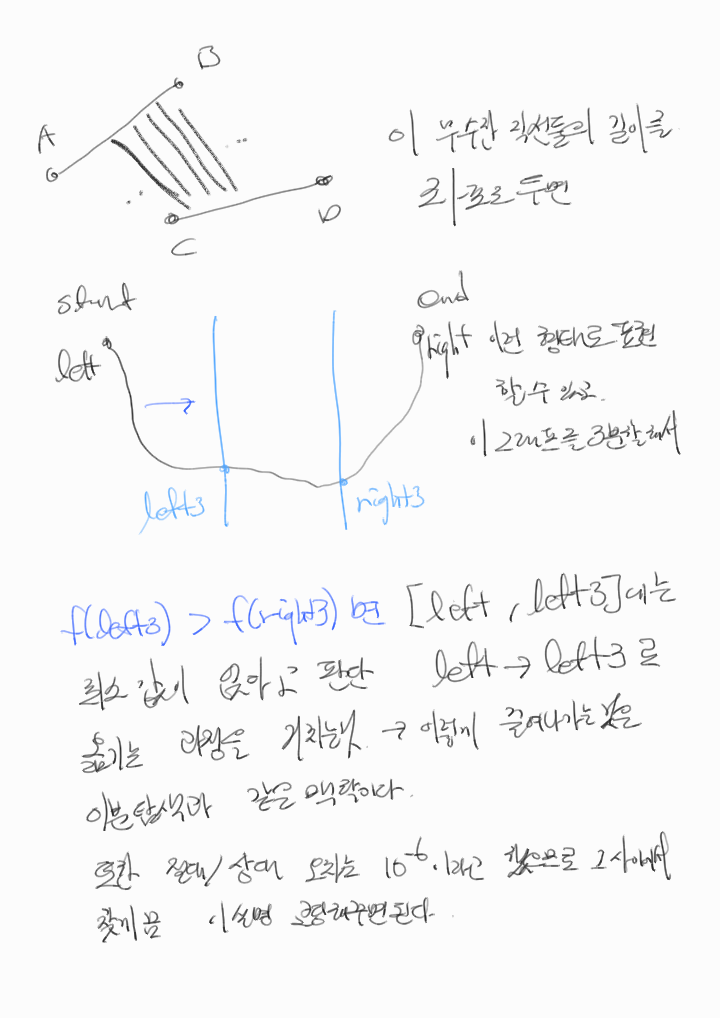 B
A
이 무수한 직선들의 길이를
그래프로 두면
D
C
start
end
left
right 이런 형태로 표현
할 수 있고.
이 그래프를 3분할해서
left3
right3
f(left3) > f(right3) 면 [left, left3]에는
최소 값이 없다고 판단 left → left3 로
옮기는 과정을 거치는것. → 이렇게 줄여나가는 것은
이분탐색과 같은 맥락이다.
또한 절대/상대 오차는 10⁻⁶.이라고 했으므로 그 사이에서
찾게끔 이 실행해주면된다.